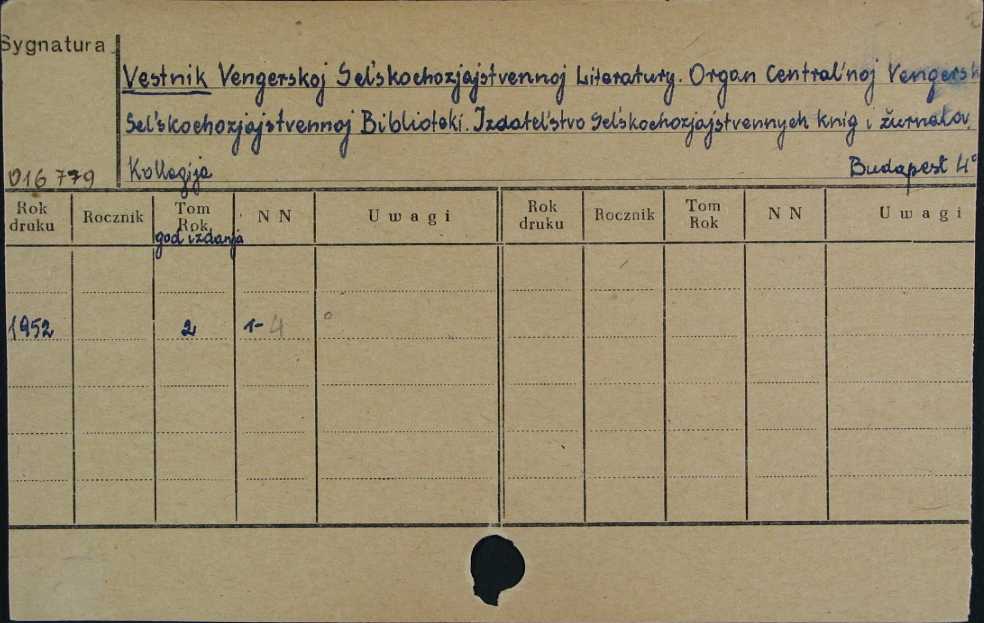 Sygnatura
Vestnik Vengerskoj Sel'skochozjajstvennoj Literatury. Organ Central'noj Vengersk
Sel'skochozjajstvennoj Biblioteki. Izdatel'stvo Sel'skochozjajstvennych knig i žurnalov.
016 779 Kollegija Budapest 4°
Rok druku Rocznik Tom Rok N N Uwagi Rok druku Rocznik Tom Rok N N Uwagi
god izdanja
1952 2 1-4 °